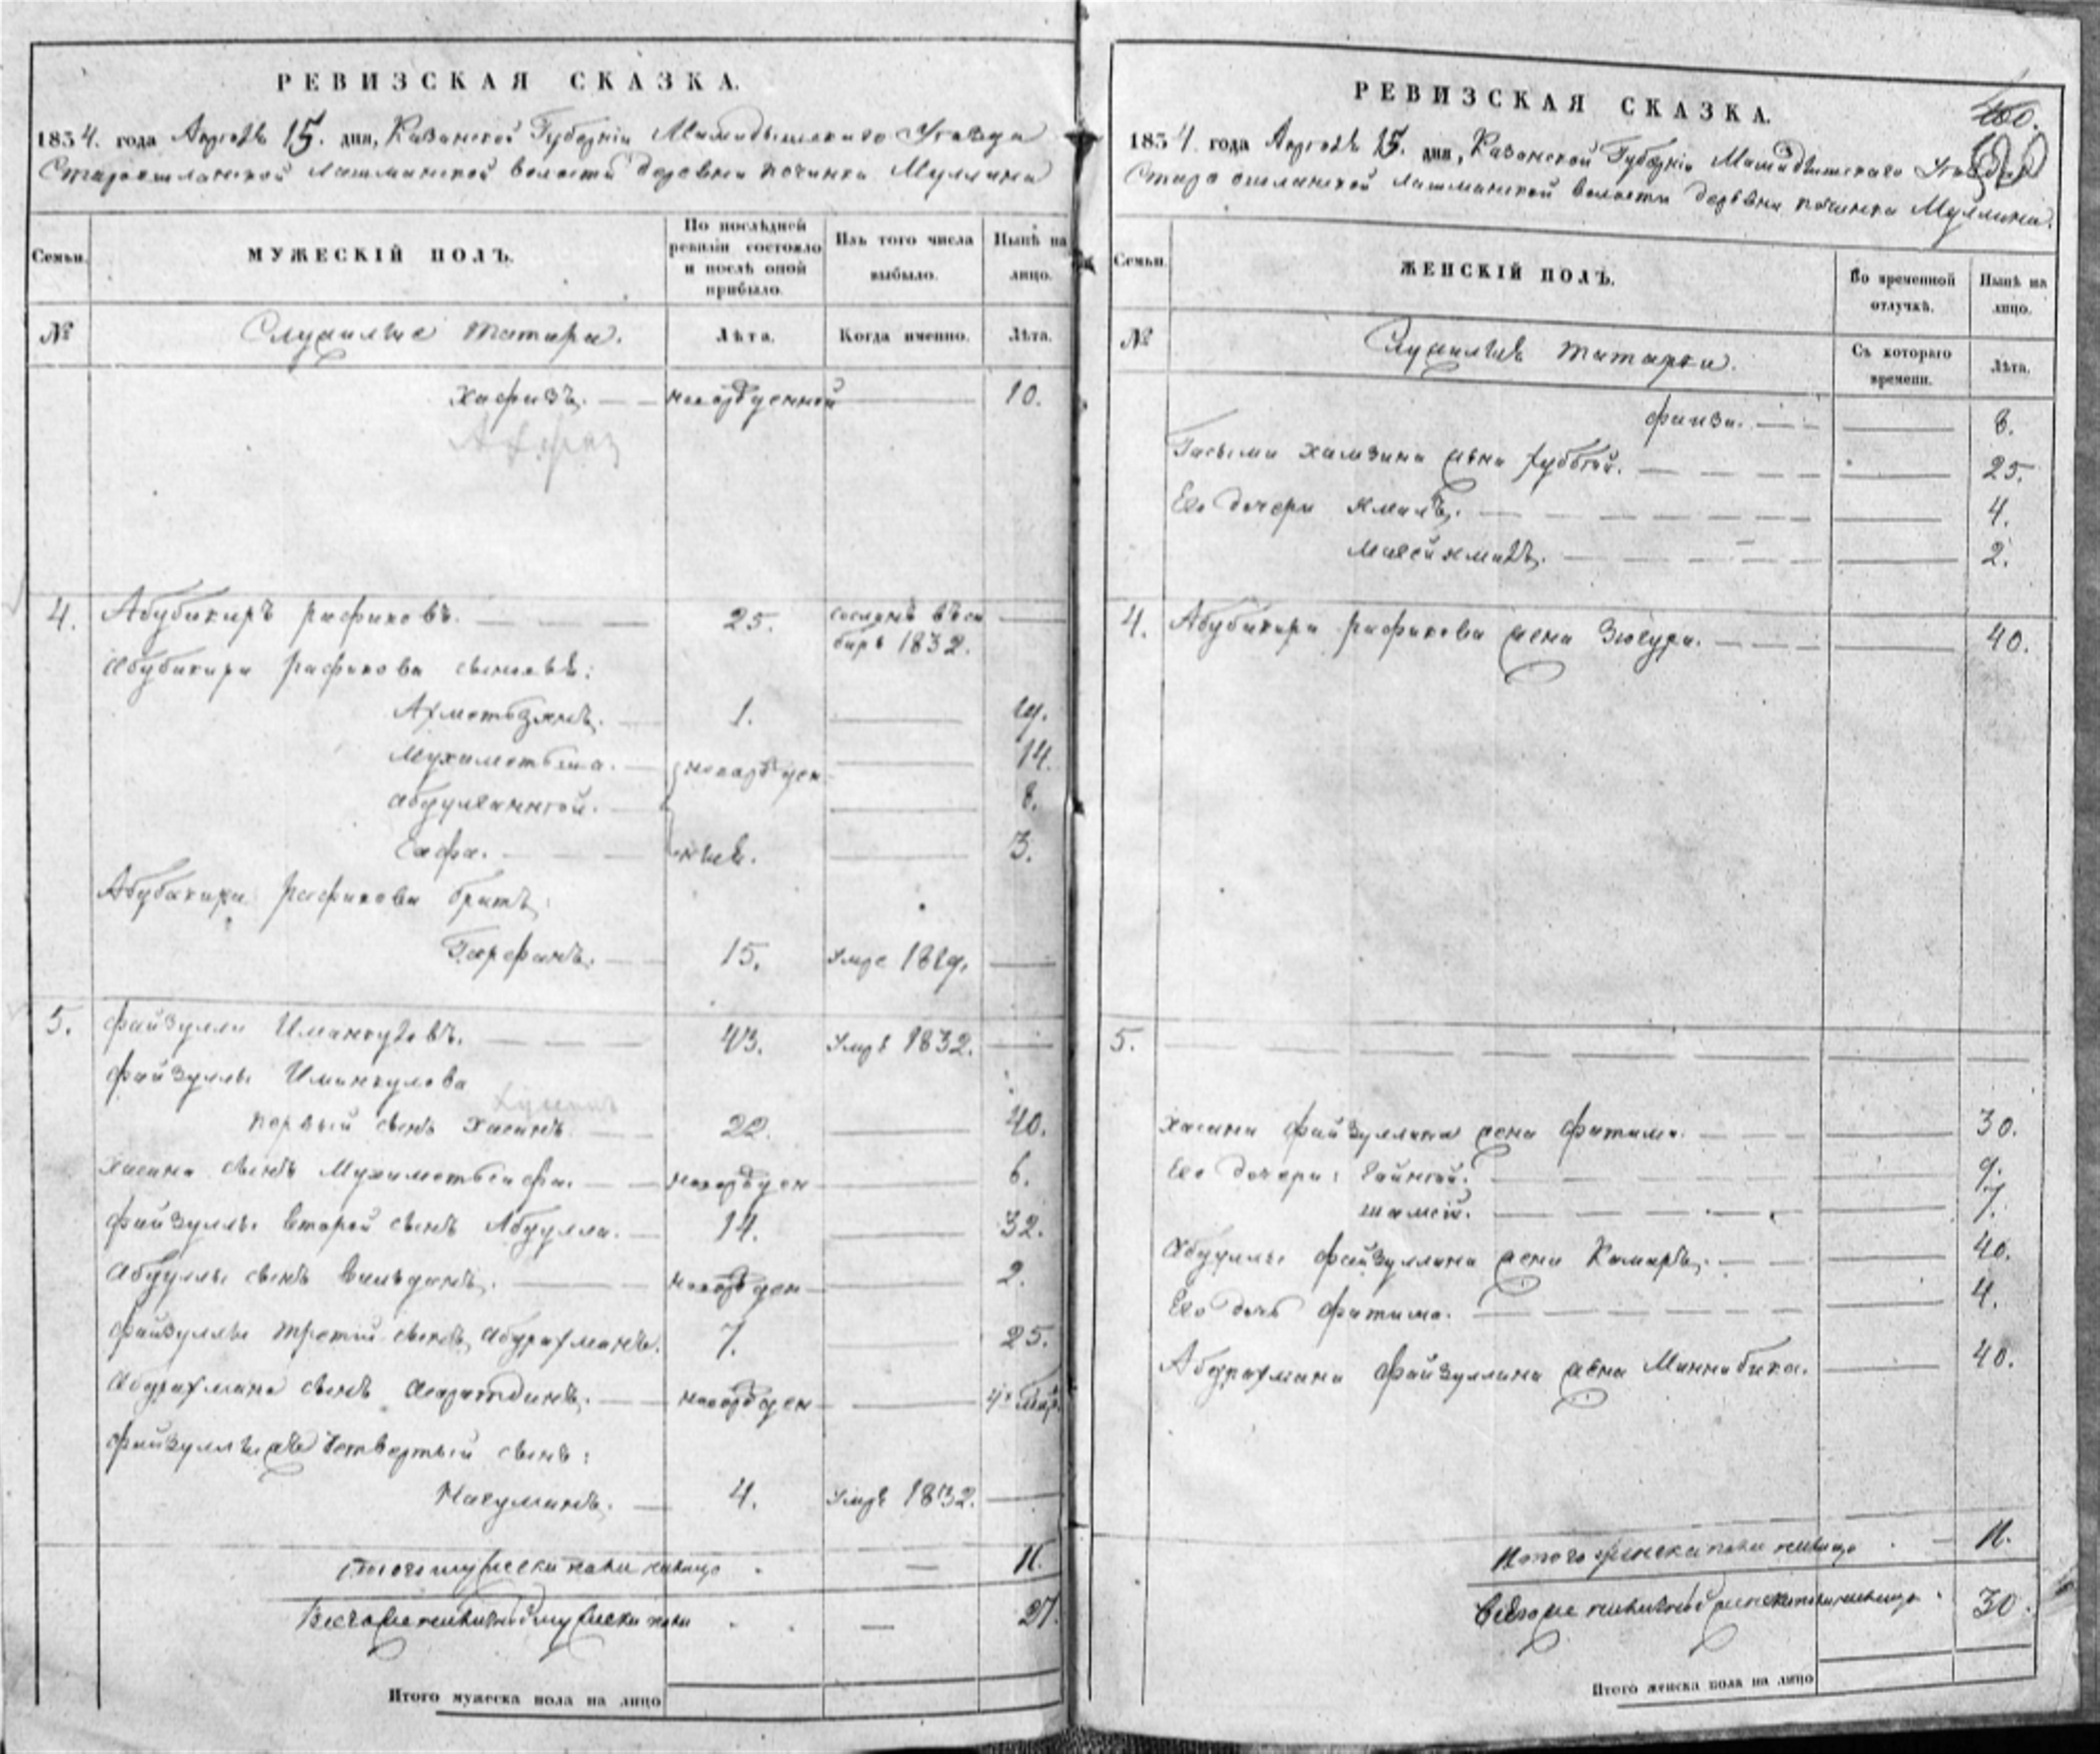 РЕВИЗСКАЯ СКАЗКА.
1834. года Апреля 15. дня, Казанской Губерніи Мамадышскаго Уезда
лашманской волости деревни починка Муллина
Семьи.
МУЖЕСКІЙ ПОЛЪ.
По послѣдней ревизіи состояло и послѣ оной прибыло.
Изъ того числа выбыло.
Нынѣ на лицо.
№
Служилые татара.
Лѣта.
Когда именно.
Лѣта.
Хафизъ. новорожденной 10.
4. Абубакиръ Рафиковъ. 25. сосланъ въ си
бирь 1832.
Абубакира Рафикова сыновья:
Ахметьзянъ. 1. 19.
Мухаметьша. новорожден 14.
Абдулганней. 8.
Сафа. ные. 3.
Абубакира Рафикова братъ:
15. умре 1829.
5. Файзулла Иманкуловъ. 43. умре 1832.
Файзуллы Иманкулова
первый сынъ Хасанъ 22. 40.
Хасана сынъ Мухаметьсафа. новорожден 6.
Файзуллы второй сынъ Абдулла. 14. 32.
Абдуллы сынъ Вильданъ. новорожден 2.
Файзуллы третій сынъ Абдрахманъ. 7. 25.
Абдрахмана сынъ новорожден
Файзуллы же четвертый сынъ:
Нагуманъ. 4. умре 1832.
Итого мужеска пола налицо 11.
Всего мужеска пола 27.
Итого мужеска пола на лицо
РЕВИЗСКАЯ СКАЗКА.
1834 года Апреля 15. дня, Казанской Губерніи Мамадышскаго Уезда
лашманской волости деревни починка Муллина.
Семьи.
ЖЕНСКІЙ ПОЛЪ.
Во временной отлучкѣ.
Нынѣ на лицо.
№
Служилыя татарки.
Съ котораго времени.
Лѣта.
Фаиза. 8.
Хамзина жена 25.
Его дочери 4.
2.
4. Абубакира Рафикова жена Зюгура. 40.
5.
Хасана Файзуллина жена Фатима. 30.
Его дочери: 9.
Шамсій. 7.
Абдуллы Файзуллина жена Камаръ. 40.
Его дочь Фатима. 4.
Абдрахмана Файзуллина жена Миннабика. 40.
Итого женска пола налицо 11.
Всего женска пола налицо 30.
Итого женска пола на лицо